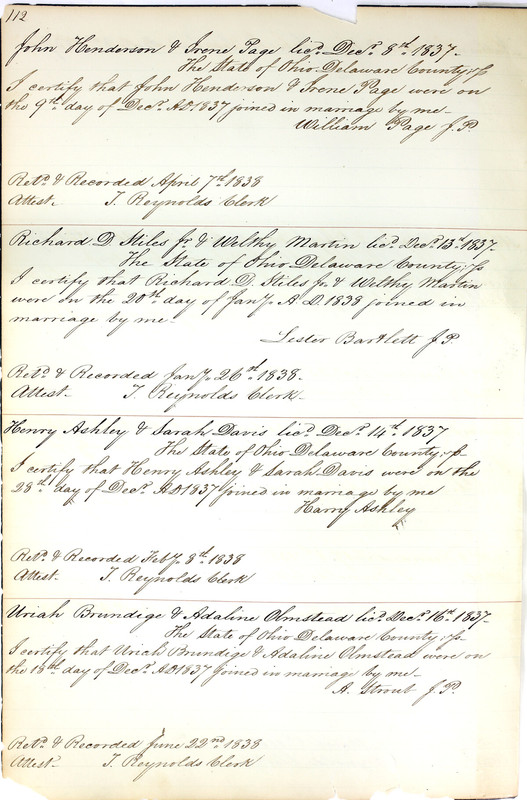 112
John Henderson & Irene Page licd. Decr. 8th. 1837-
The State of Ohio Delaware County, ss
I certify that John Henderson & Irene Page were on
the 9th day of Decr. AD. 1837 joined in marriage by me-
William Page J.P.
Retd. & Recorded April 7th. 1838
Attest- T. Reynolds Clerk
Richard D. Stiles Jr. & Welthy Martin licd. Decr. 13th. 1837-
The State of Ohio Delaware County, ss
I certify that Richard D. Stiles Jr. & Welthy Martin
were on the 20th day of Jany. A D. 1838 joined in
marriage by me-
Lester Bartlett J.P.
Retd. & Recorded Jany. 26th. 1838-
Attest- T. Reynolds Clerk-
Henry Ashley & Sarah Davis licd. Decr. 14th. 1837
The State of Ohio Delaware County, ss
I certify that Henry Ashley & Sarah Davis were on the
28th day of Decr. AD 1837 joined in marriage by me
Harry Ashley
Retd. & Recorded Feby. 8th. 1838
Attest- T. Reynolds Clerk
Uriah Brundige & Adaline Olmstead licd. Decr. 16th. 1837-
The State of Ohio Delaware County, ss
I certify that Uriah Brundige & Adaline Olmstead were on
the 18th day of Decr. AD 1837 joined in marriage by me-
A. Strout J.P.
Retd. & Recorded June 22nd 1838
Attest- T. Reynolds Clerk